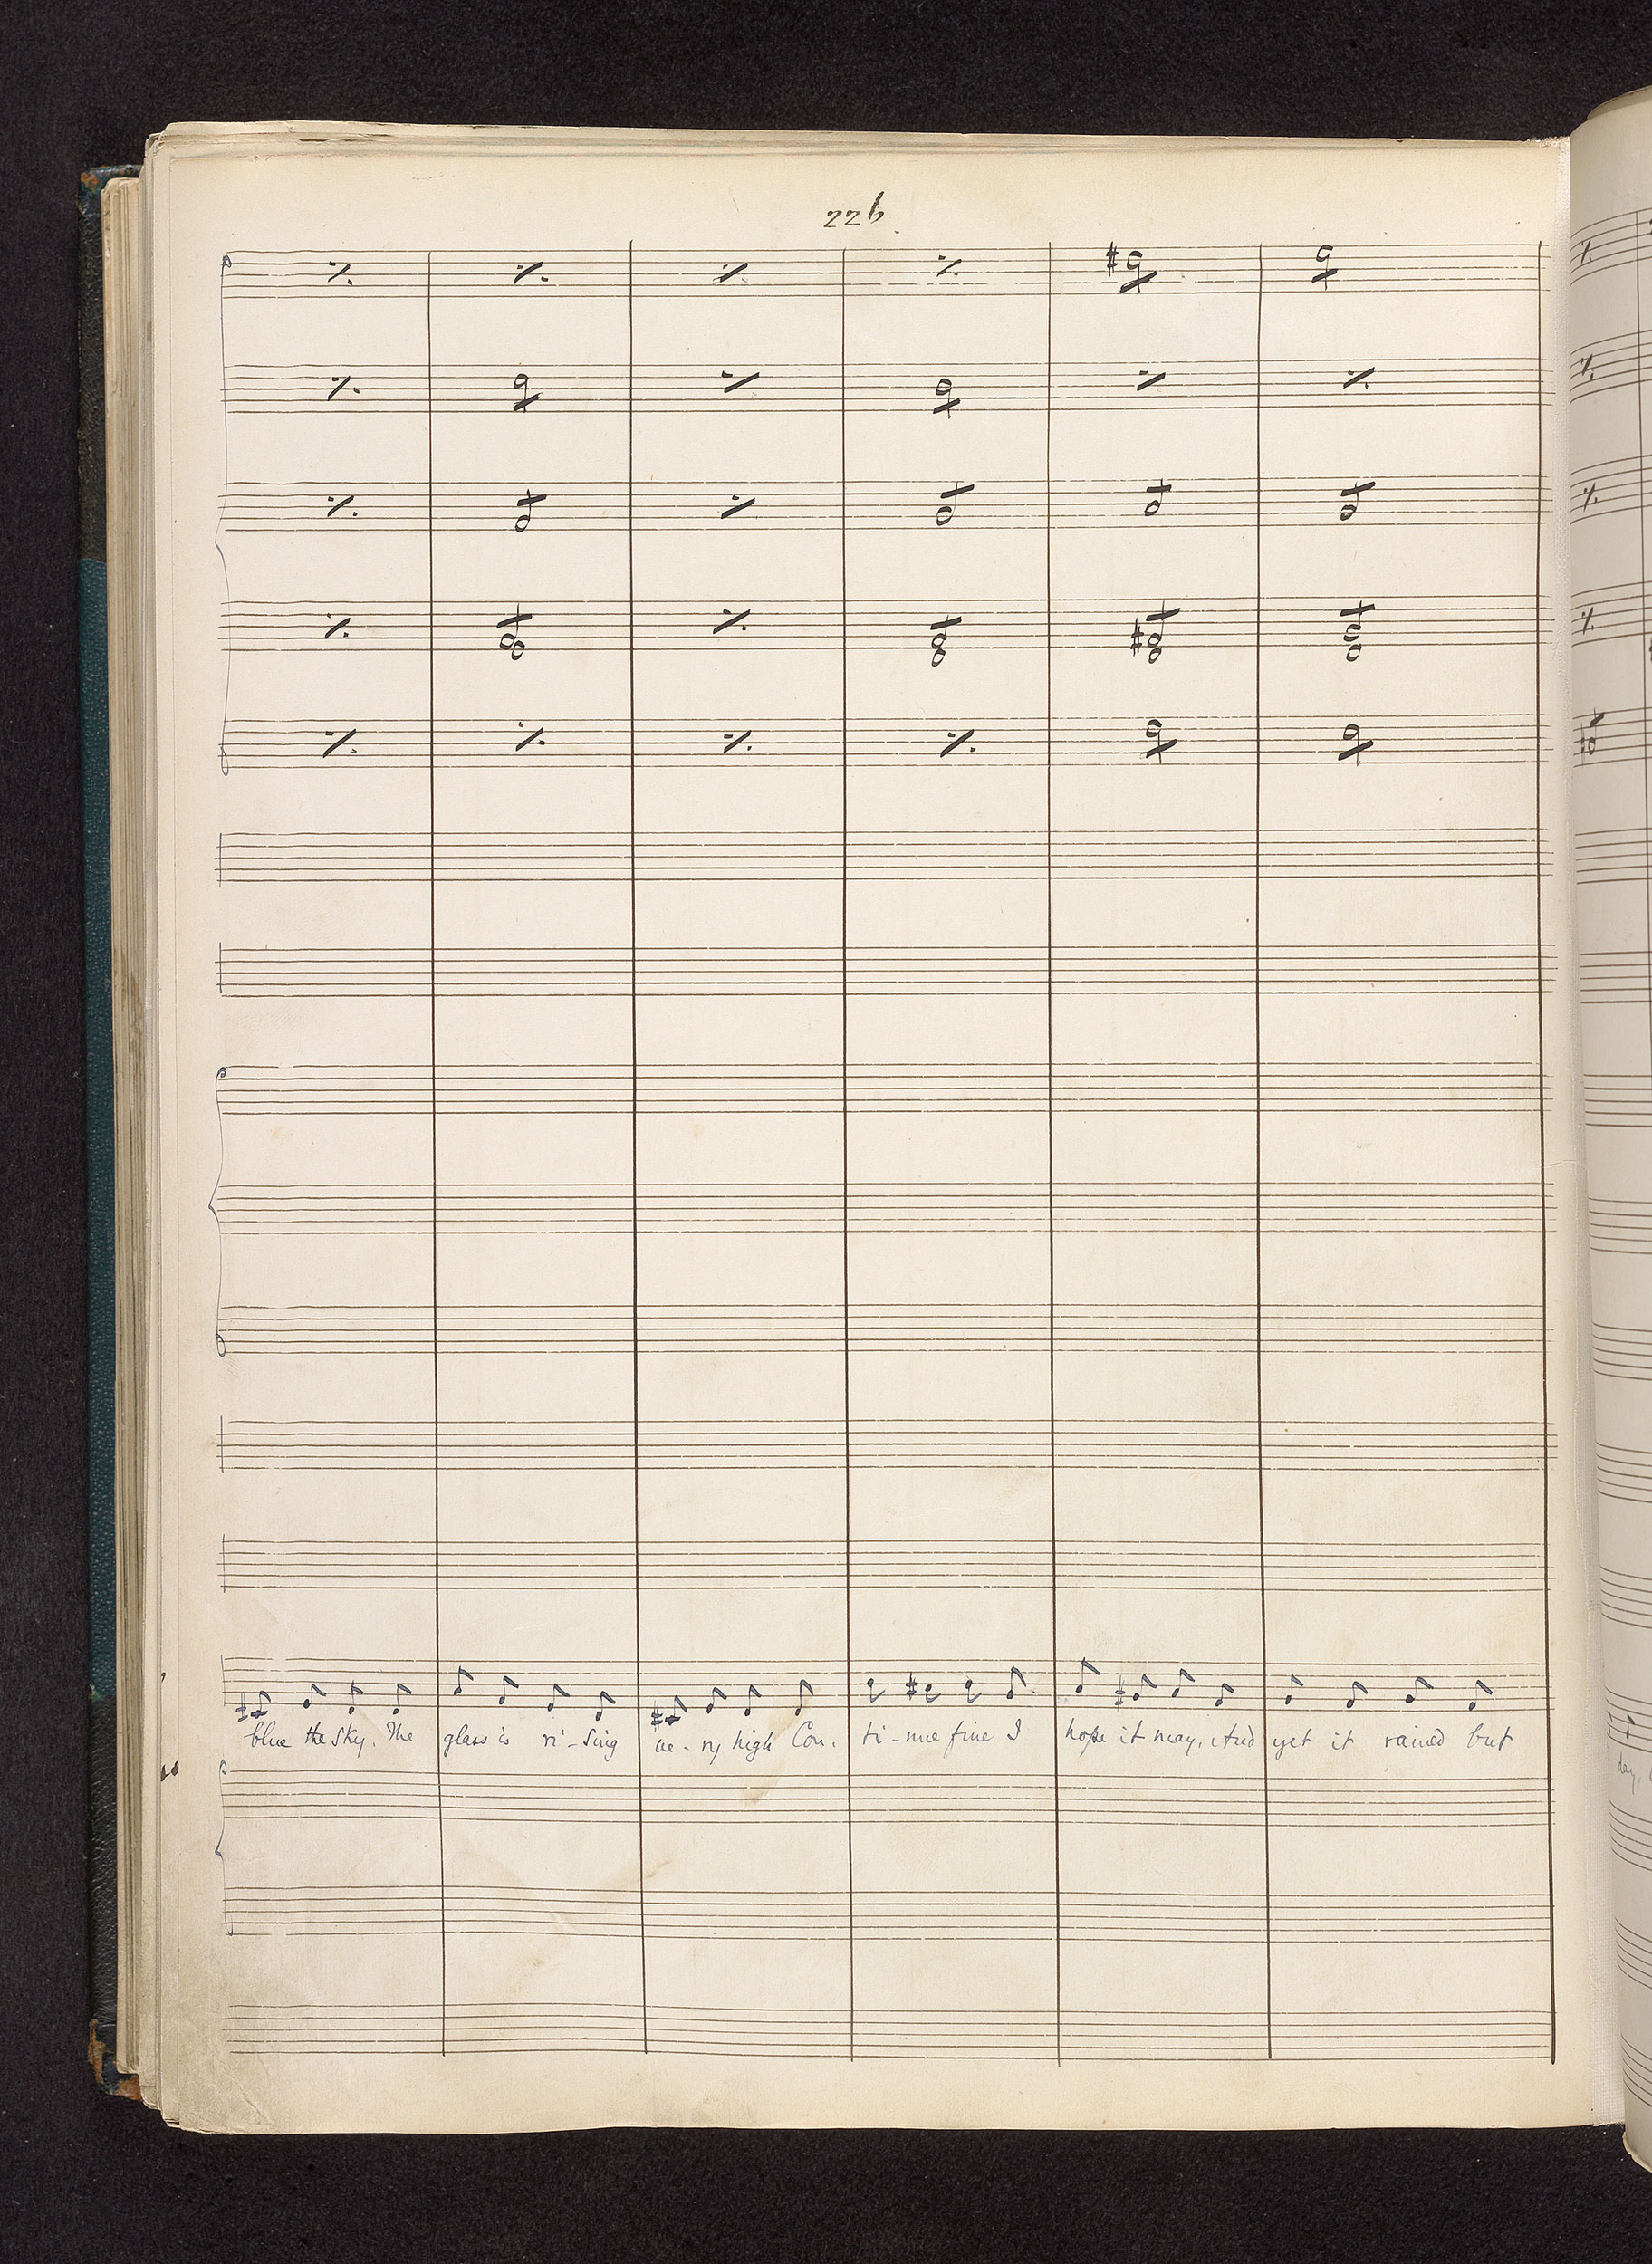 226
blue the sky. The glass is ri - sing ve - ry high Con - ti - nue fine I hope it may, And yet it rained but
day,